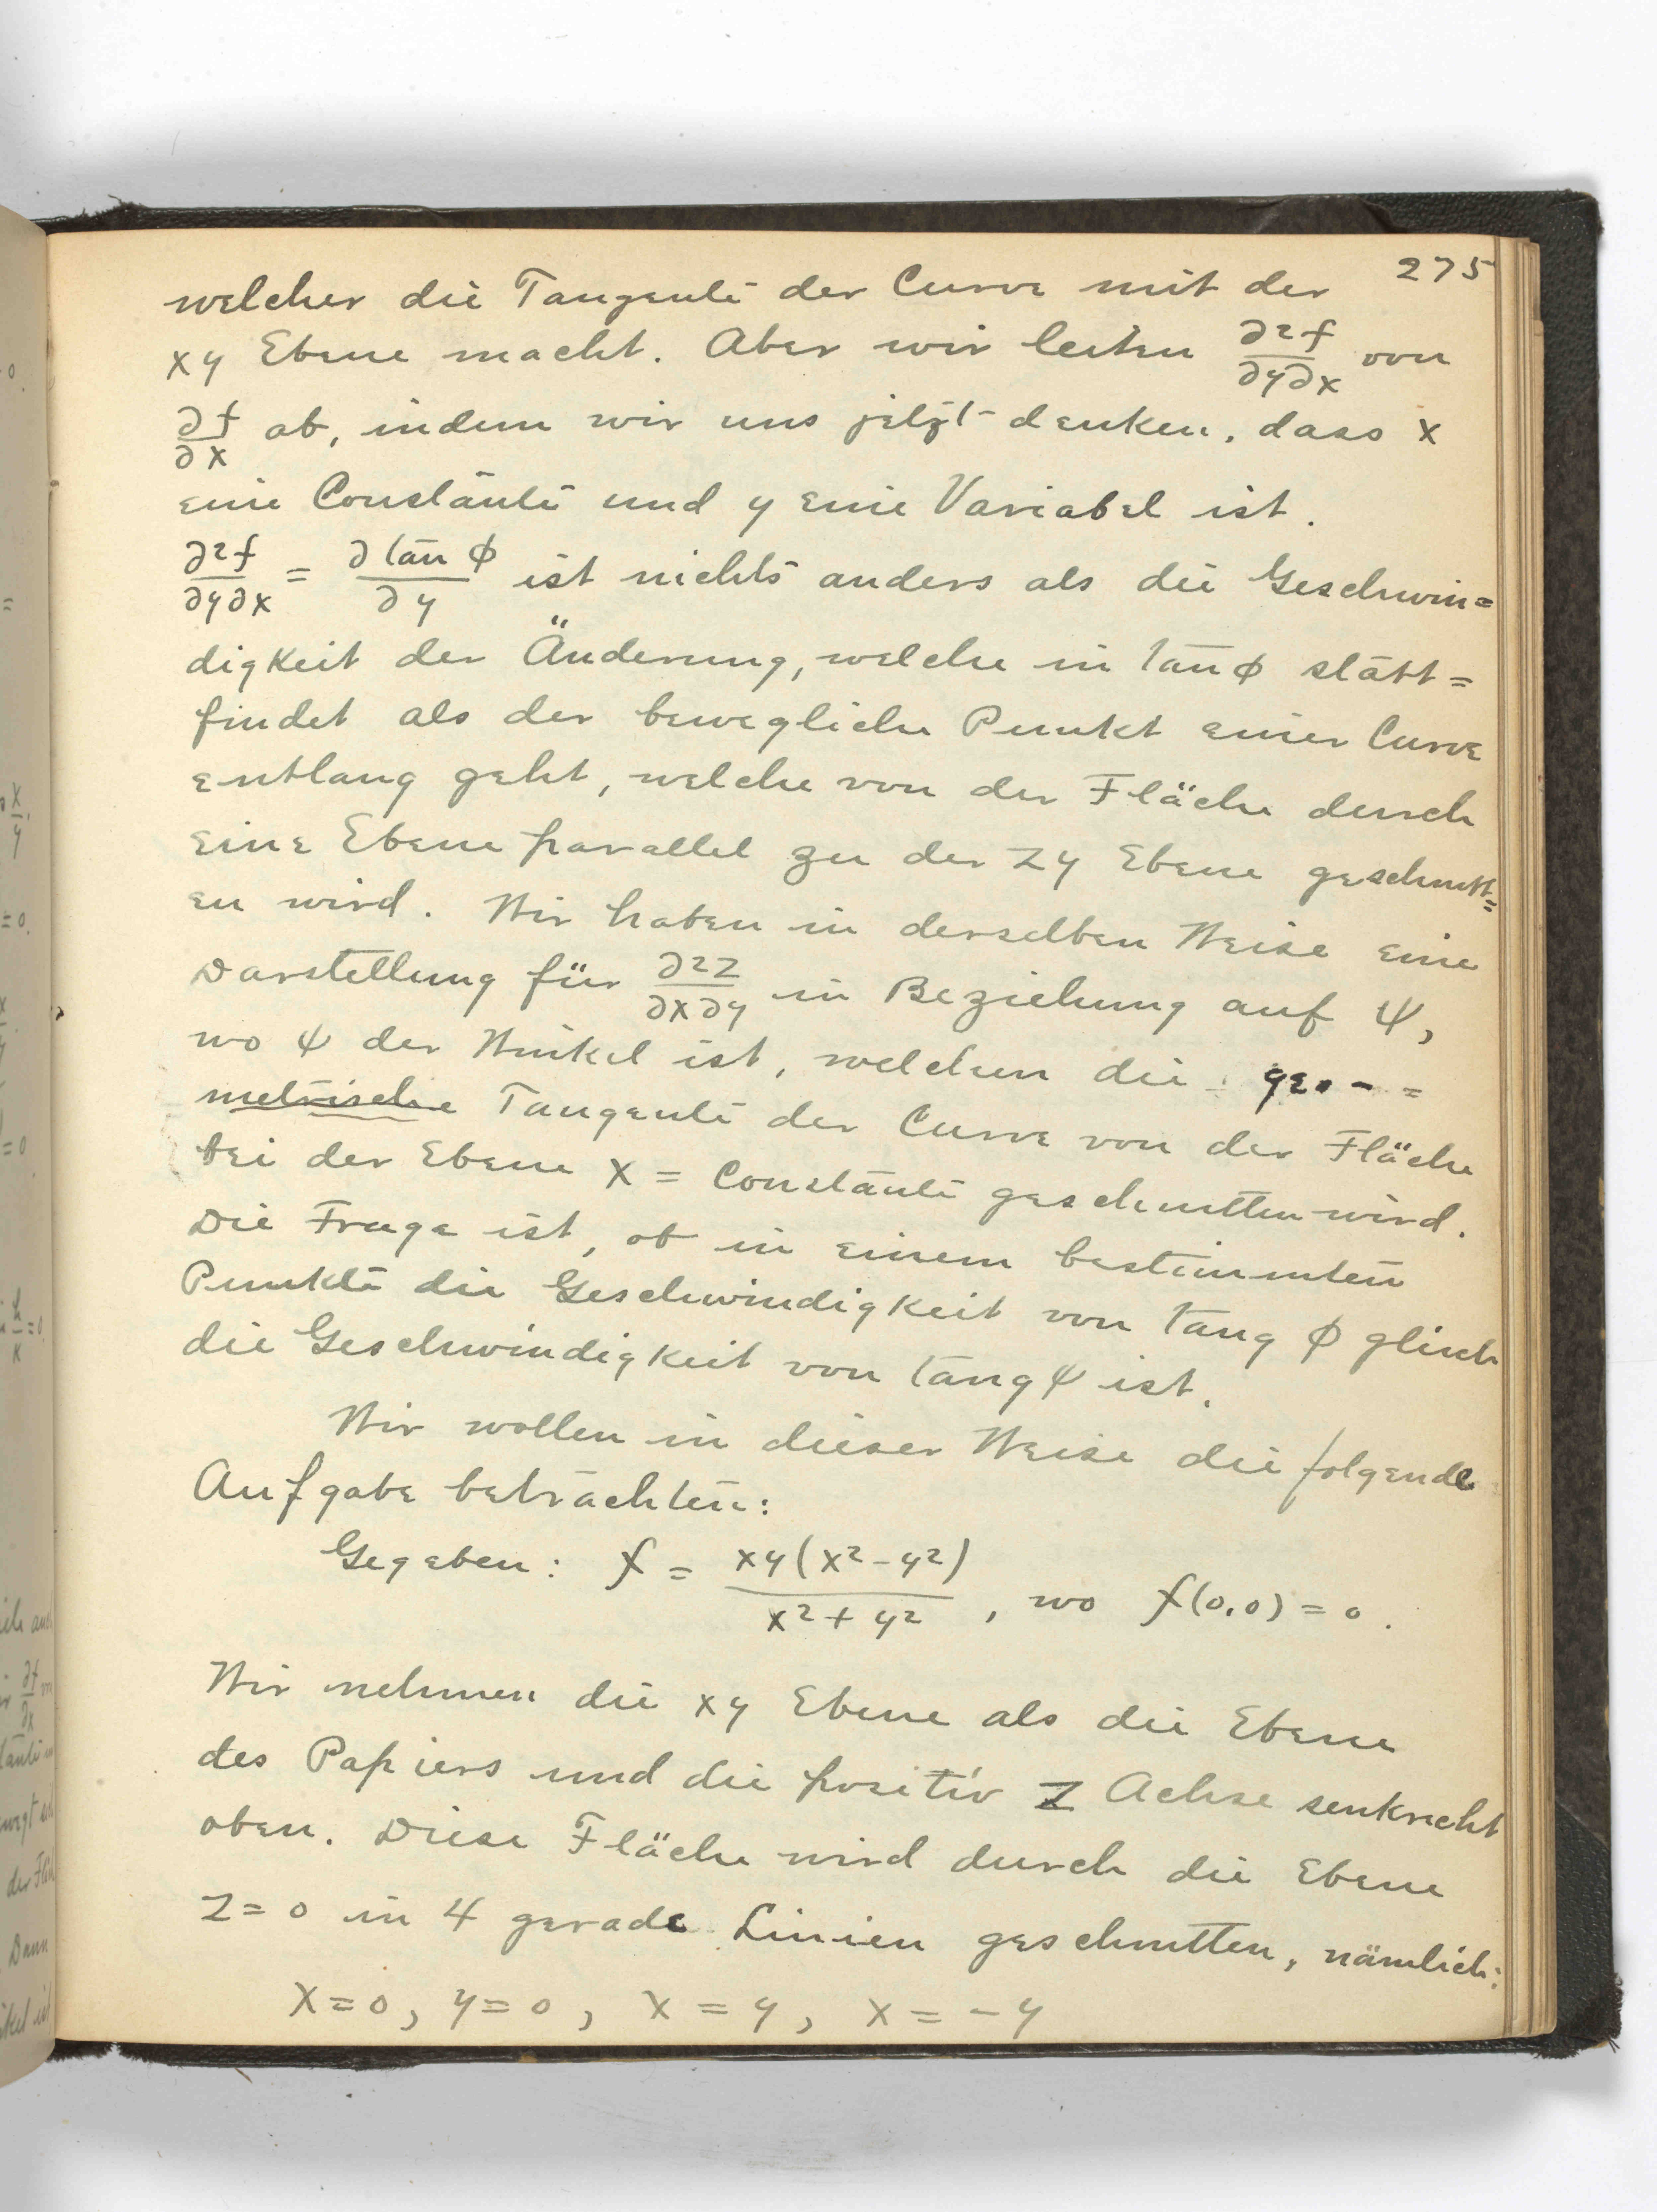 275
welcher die Tangente der Curve mit der
xy Ebene macht. Aber wir leiten ∂²f/∂y∂x von
∂f/∂x ab, indem wir uns jetzt denken, dass x
eine Constante und y eine Variabel ist.
∂²f/∂y∂x = ∂ tan φ/∂y ist nichts anders als die Geschwin=
digkeit der Änderung, welche in tan φ statt=
findet als der bewegliche Punkt einer Curve
entlang geht, welche von der Fläche durch
eine Ebene parallel zu der zy Ebene geschnitt=
en wird. Wir haben in derselben Weise eine
Darstellung für ∂²z/∂x∂y in Beziehung auf ψ,
wo ψ der Winkel ist, welchen die geo-=
metrische Tangente der Curve von der Fläche
bei der Ebene x = Constante geschnitten wird.
Die Frage ist, ob in einem bestimmten
Punkte die Geschwindigkeit von tang φ gleich
die Geschwindigkeit von tang ψ ist.
Wir wollen in dieser Weise die folgende
Aufgabe betrachten:
Gegeben: f = xy(x²-y²)/x²+y², wo f(0,0) = 0.
Wir nehmen die xy Ebene als die Ebene
des Papiers und die positiv z Achse senkrecht
oben. Diese Fläche wird durch die Ebene
z=0 in 4 gerade Linien geschnitten, nämlich:
x=0, y=0, x=y, x=-y